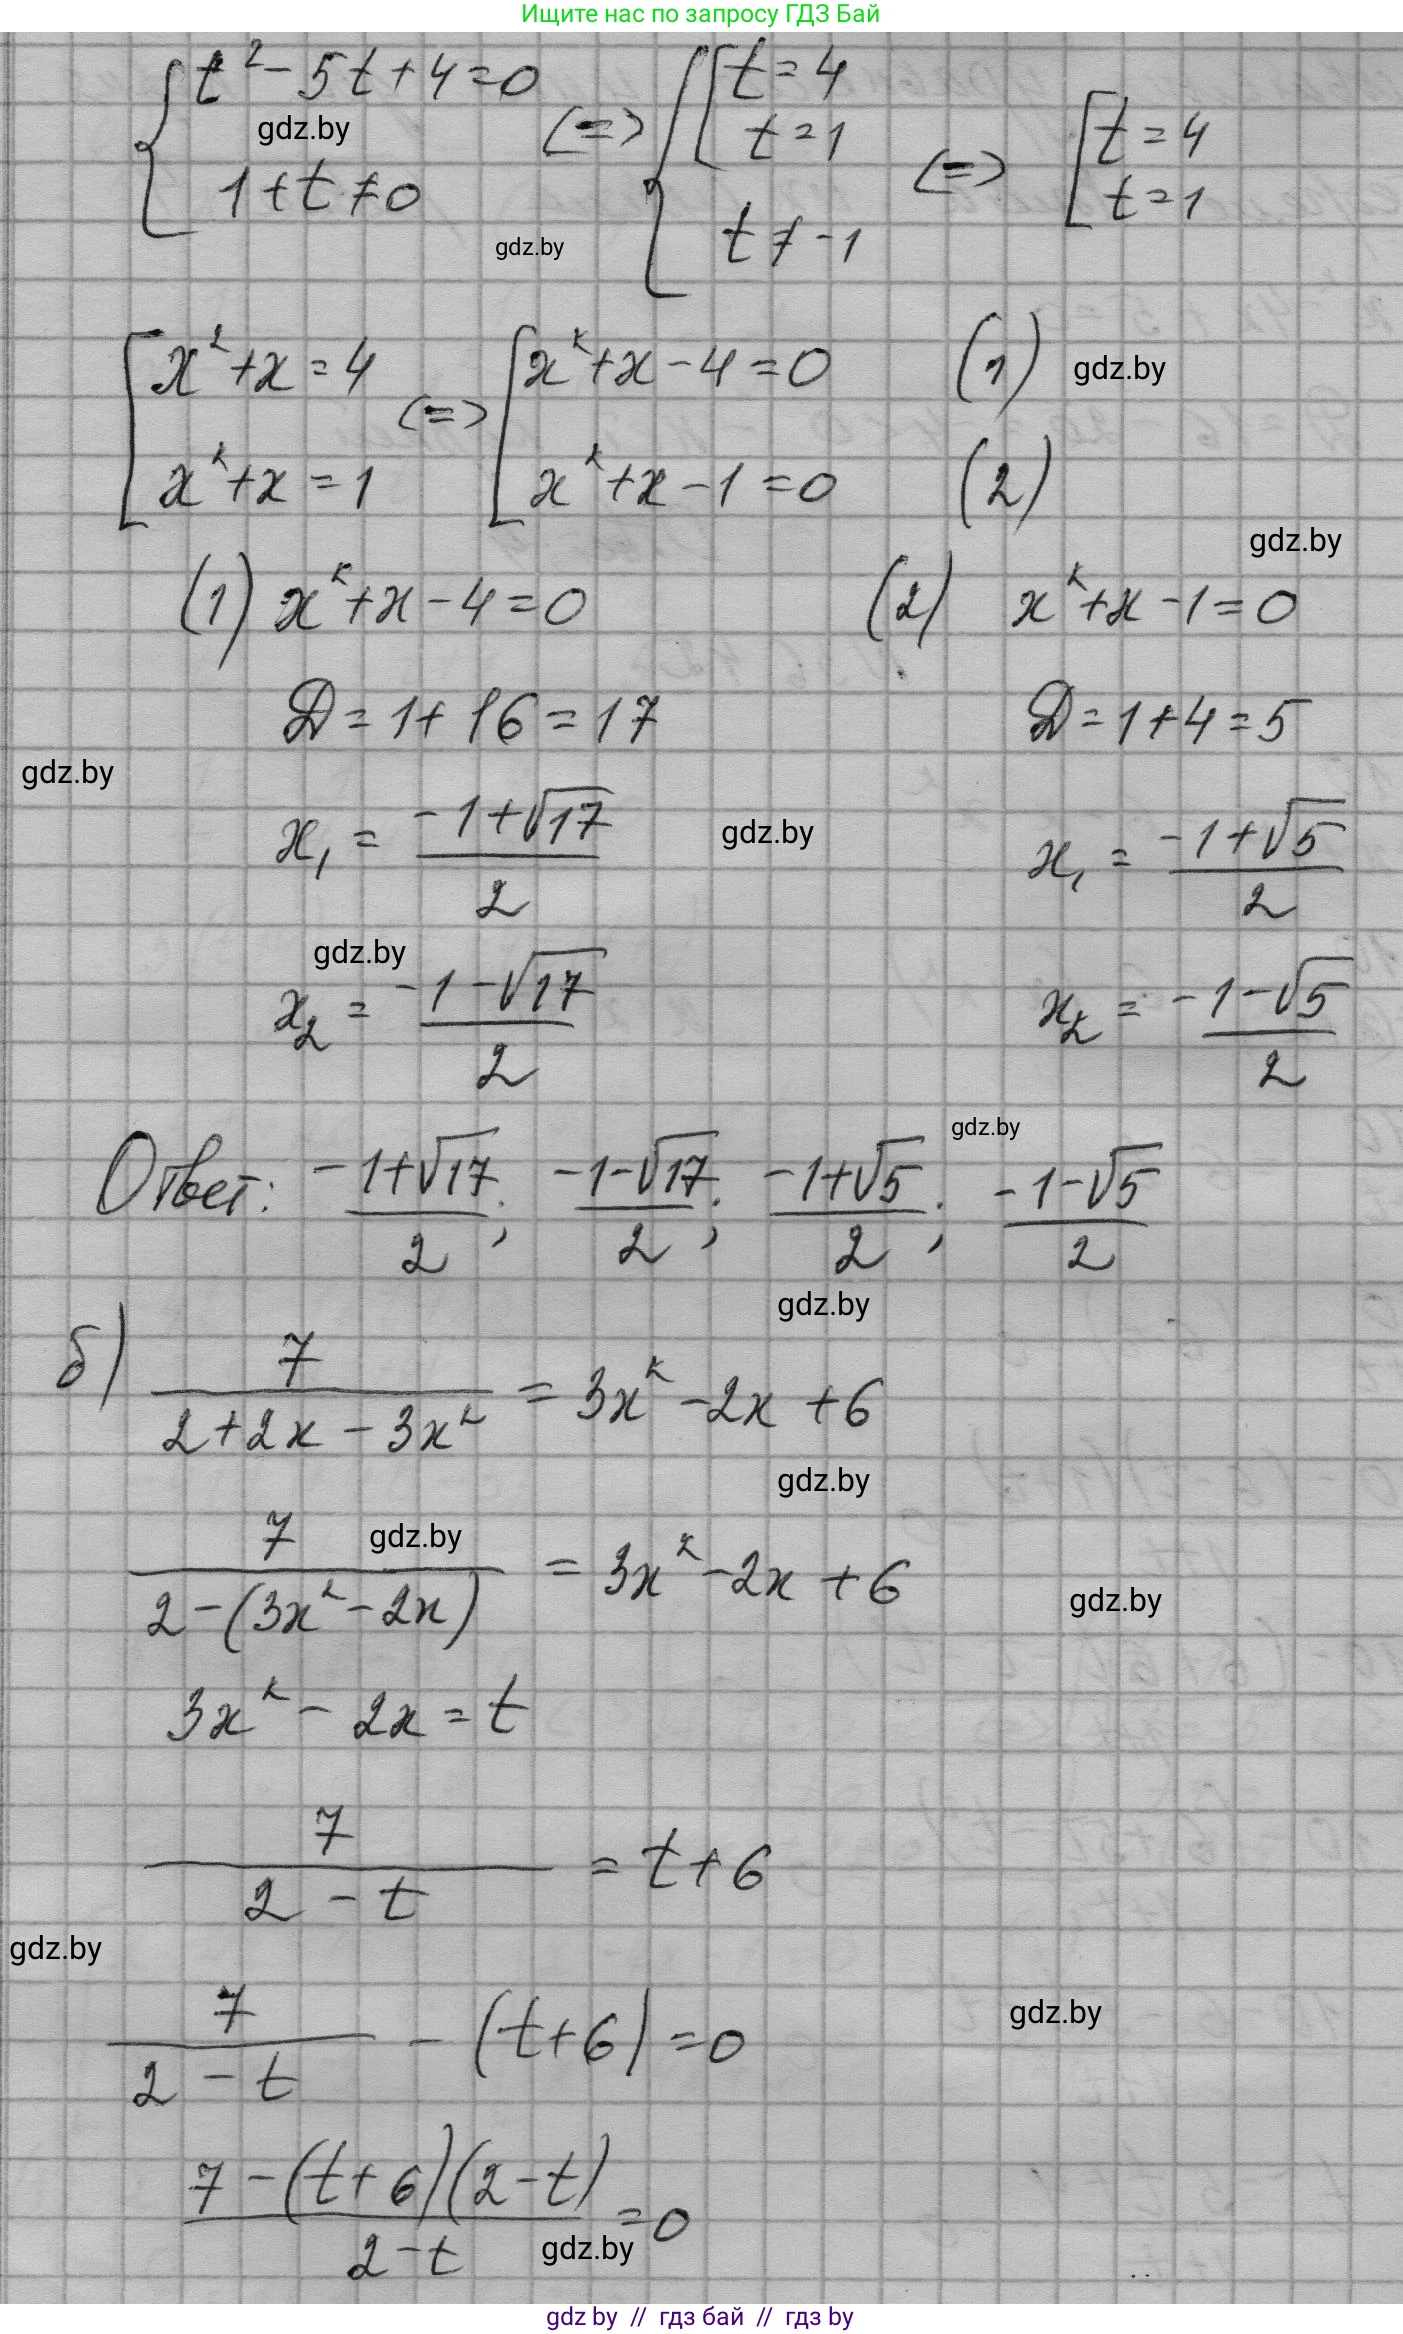 Ищите нас по запросу ГДЗ Бай
{ t² - 5t + 4 = 0 ; 1 + t ≠ 0 <=> { [ t = 4 ; t = 1 ; t ≠ -1 <=> [ t = 4 ; t = 1
gdz.by
gdz.by
[ x² + x = 4 <=> [ x² + x - 4 = 0 (1)
gdz.by
x² + x = 1 x² + x - 1 = 0 (2)
gdz.by
(1) x² + x - 4 = 0 (2) x² + x - 1 = 0
D = 1 + 16 = 17 D = 1 + 4 = 5
gdz.by
x₁ = (-1+√17)/2 x₁ = (-1+√5)/2
gdz.by
gdz.by
x₂ = (-1-√17)/2 x₂ = (-1-√5)/2
gdz.by
Ответ: (-1+√17)/2; (-1-√17)/2; (-1+√5)/2; (-1-√5)/2
gdz.by
б) 7/(2+2x-3x²) = 3x² - 2x + 6
gdz.by
gdz.by
7/(2-(3x²-2x)) = 3x² - 2x + 6
gdz.by
3x² - 2x = t
7/(2-t) = t + 6
gdz.by
7/(2-t) - (t+6) = 0
gdz.by
(7-(t+6)(2-t))/(2-t) = 0
gdz.by
gdz by // гдз бай // гдз by